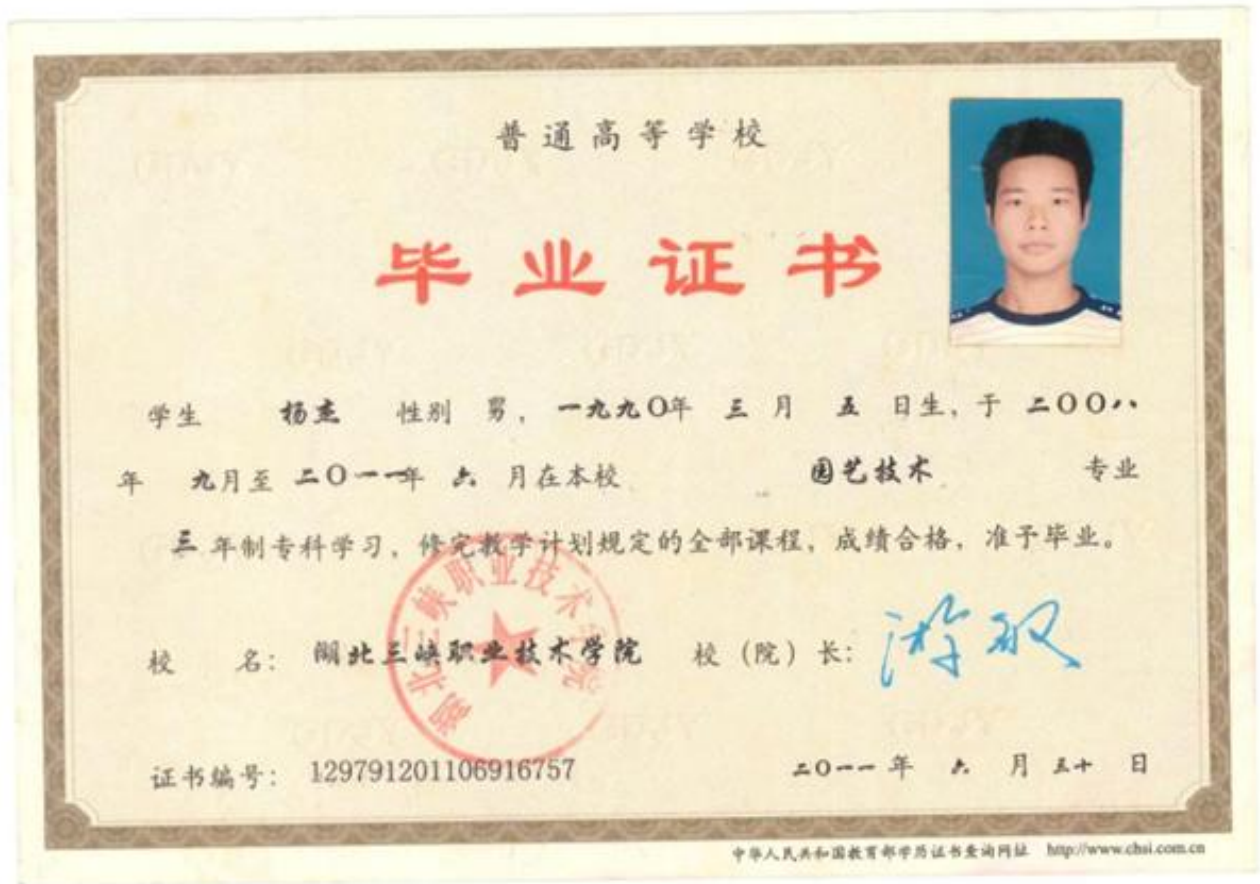 普通高等学校
毕业证书
学生 杨杰 性别 男，一九九〇年 三 月 五 日生，于 二〇〇八
年 九月至 二〇一一年 六 月在本校 园艺技术 专业
三 年制专科学习，修完教学计划规定的全部课程，成绩合格，准予毕业。
校 名： 湖北三峡职业技术学院 校（院）长：游敏
湖北三峡职业技术学院
证书编号： 129791201106916757 二〇一一 年 六 月 三十 日
中华人民共和国教育部学历证书查询网址 http://www.chsi.com.cn